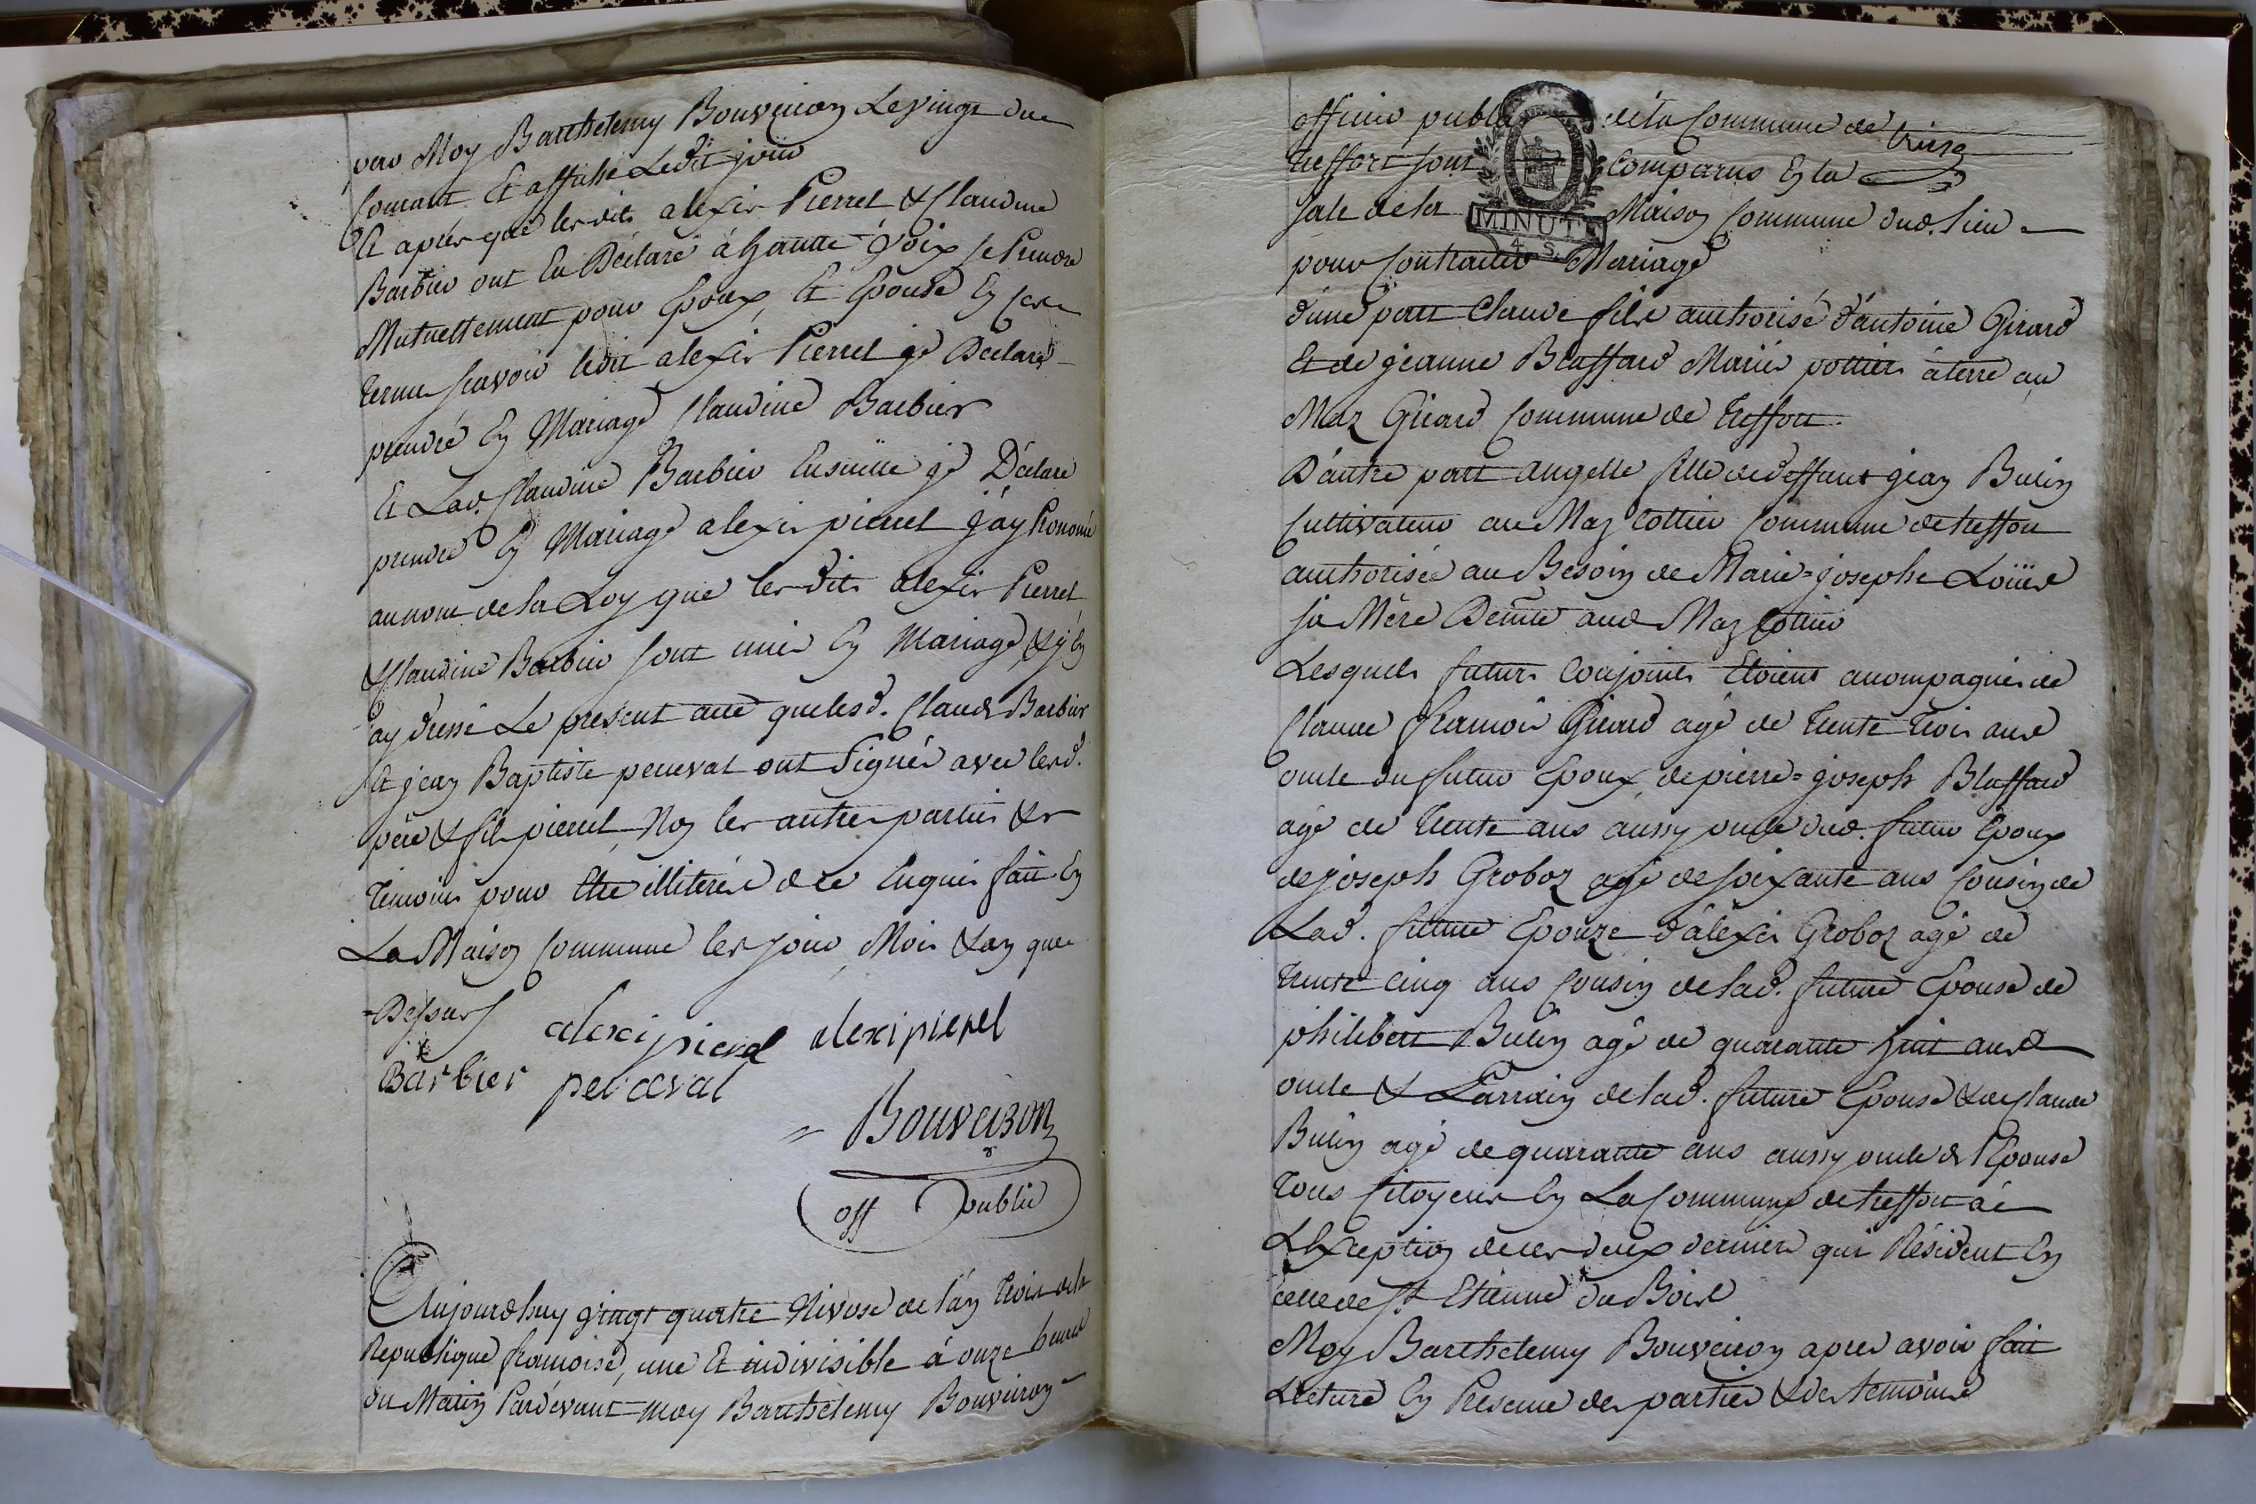 par Moy Barthelemy Bouveiron Le vingt du
Courant Et affiché Ledit jour
Et après que lesdits alexis Pierrel & Claudine
Barbier ont Eu Déclaré à haute Voix se Prendre
Mutuellement pour Epoux, Et Epouse En ces
terme scavoir ledit alexis Pierrel je Declare
prendre En Mariage Claudine Barbier
Et Lad. Claudine Barbier Ensuitte je Déclare
prendre En Mariage alexis pierrel j'ay Prononcé
au nom de la Loy que lesdits alexis Pierrel
& Claudine Barbier sont unis En Mariage, & j'en
ay dressé Le present acte que lesd. Claude Barbier
Et jean Baptiste perceval ont Signés avec lesd.
père & fils pierrel, Non les autres parties &
Temoins pour Etre illiterés de ce Enquis fait En
La Maison Commune les jour, Mois & an que
Dessus
alexi pierel alexi pierel
Barbier perceval
Bouveiron
off public
Aujourdhuy vingt quatre Nivose de l'an Trois de la
Republique françoise, une Et indivisible à onze heures
du Matin Pardevant moy Barthelemy Bouveiron
officier public de la Commune de
treffort sont Comparus En la
MINUTE
4. S.
sale de la Maison Commune dud. Lieu
pour Contracter Mariage
d'une part Claude fils authorisé d'antoine Girard
Et de jeanne Bluffard Mariés pottiers à terre au
Maz Girard Commune de treffort.
D'autre part angelle fille de deffunt jean Bulin
Cultivateur au Maz Cottier Commune de treffort
authorisée au Besoin de Marie=josephe Loüis
sa Mère Demte aud Maz Cottier
Lesquels futurs Conjoints Etoient acompagnés de
Claude françois Girard agé de trente trois ans
oncle du futur Epoux, de pierre=joseph Bluffard
agé de trente ans aussy oncle dud. futur Epoux
de joseph Groboz agé de soixante ans Cousin de
Lad. future Epouze d'alexis Groboz agé de
trente cinq ans Cousin de lad. future Epouse de
philibert Bulin agé de quarante huit ans
oncle & Parrain de lad. future Epouse & de Claude
Bulin agé de quarante ans aussy oncle de l'Epouse
Tous Citoyens En La Commune de treffort à
L'Exception de ces deux derniers qui Résident En
celle de St Etienne du Bois
Moy Barthelemy Bouveiron apres avoir fait
Lecture En Presence des parties & des temoins